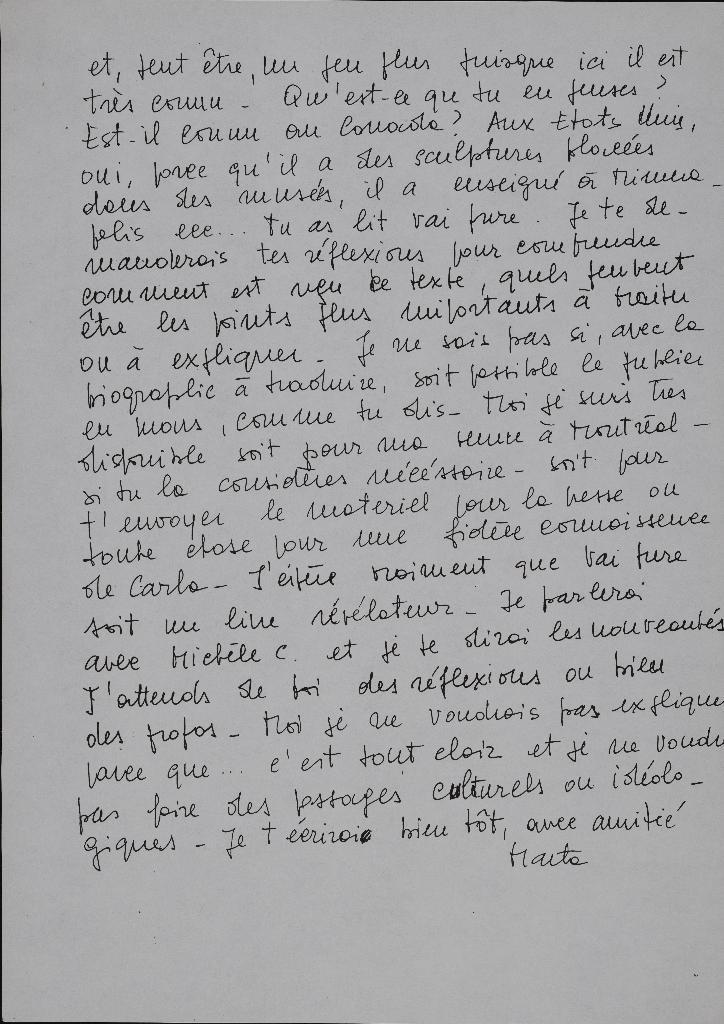 et, peut être, un peu plus puisque ici il est
très connu - Qu'est-ce que tu en penses?
Est-il connu au Canada? Aux Etats Unis,
oui, parce qu'il a des sculptures placées
dans des musées, il a enseigné à Minnea-
polis ecc... tu as lit Vai pure. Je te de-
manderais tes réflexions pour comprendre
comment est reçu ce texte, quels peuvent
être les points plus importants à traiter
ou à expliquer - Je ne sais pas si, avec la
biographie à traduire, soit possible le publier
en mars, comme tu dis - Moi je suis très
disponible soit pour ma venue à Montréal -
si tu la considères nécéssaire - soit pour
t'envoyer le materiel pour la presse ou
toute chose pour une fidèle connaissence
de Carla - J'éspère vraiment que Vai pure
soit un livre révélateur - Je parlerai
avec Michèle C. et je te dirai les nouveautés
J'attends de toi des réflexions ou bien
des propos - Moi je ne voudrais pas explique
parce que... c'est tout clair et je ne voudr
pas faire des passages culturels ou idéolo-
giques - Je t'écrirai bien tôt, avec amitié
Marta